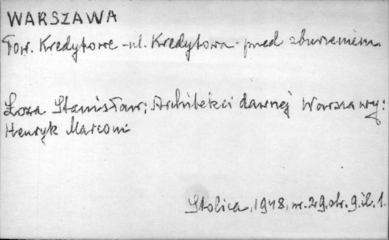 WARSZAWA
Tow. Kredytowe - ul. Kredytowa - przed zburzeniem
Łoza Stanisław; Architekci dawnej Warszawy:
Henryk Marconi
Stolica, 1948, nr. 29. str. 9. il. 1.